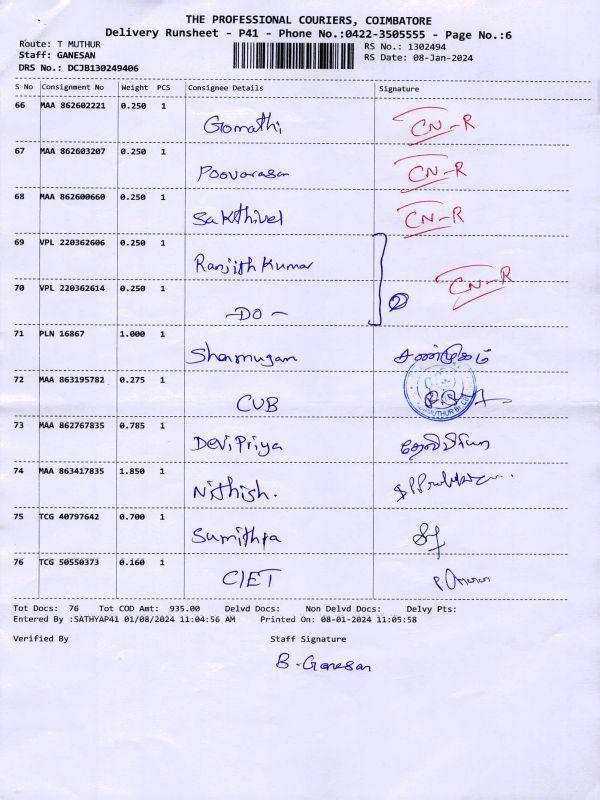 THE PROFESSIONAL COURIERS, COIMBATORE
Delivery Runsheet - P41 - Phone No.:0422-3505555 - Page No.:6
Route: T MUTHUR
RS No.: 1302494
Staff: GANESAN
RS Date: 08-Jan-2024
DRS No.: DCJB130249406
S No Consignment No Weight PCS Consignee Details Signature
66 MAA 862602221 0.250 1
Gomathi CN-R
67 MAA 862603207 0.250 1
Poovarasan CN-R
68 MAA 862600660 0.250 1
Sakthivel CN-R
69 VPL 220362606 0.250 1
Ranjith Kumar CN-R
70 VPL 220362614 0.250 1
-DO- 2
71 PLN 16867 1.000 1
Shanmugam சண்முகம்
72 MAA 863195782 0.275 1
CUB
73 MAA 862767835 0.785 1
DeviPriya தேவிபிரியா
74 MAA 863417835 1.850 1
Nithish.
75 TCG 40797642 0.700 1
Sumithra
76 TCG 50550373 0.160 1
CIET
Tot Docs: 76 Tot COD Amt: 935.00 Delvd Docs: Non Delvd Docs: Delvy Pts:
Entered By :SATHYAP41 01/08/2024 11:04:56 AM Printed On: 08-01-2024 11:05:58
Verified By Staff Signature
B. Ganesan